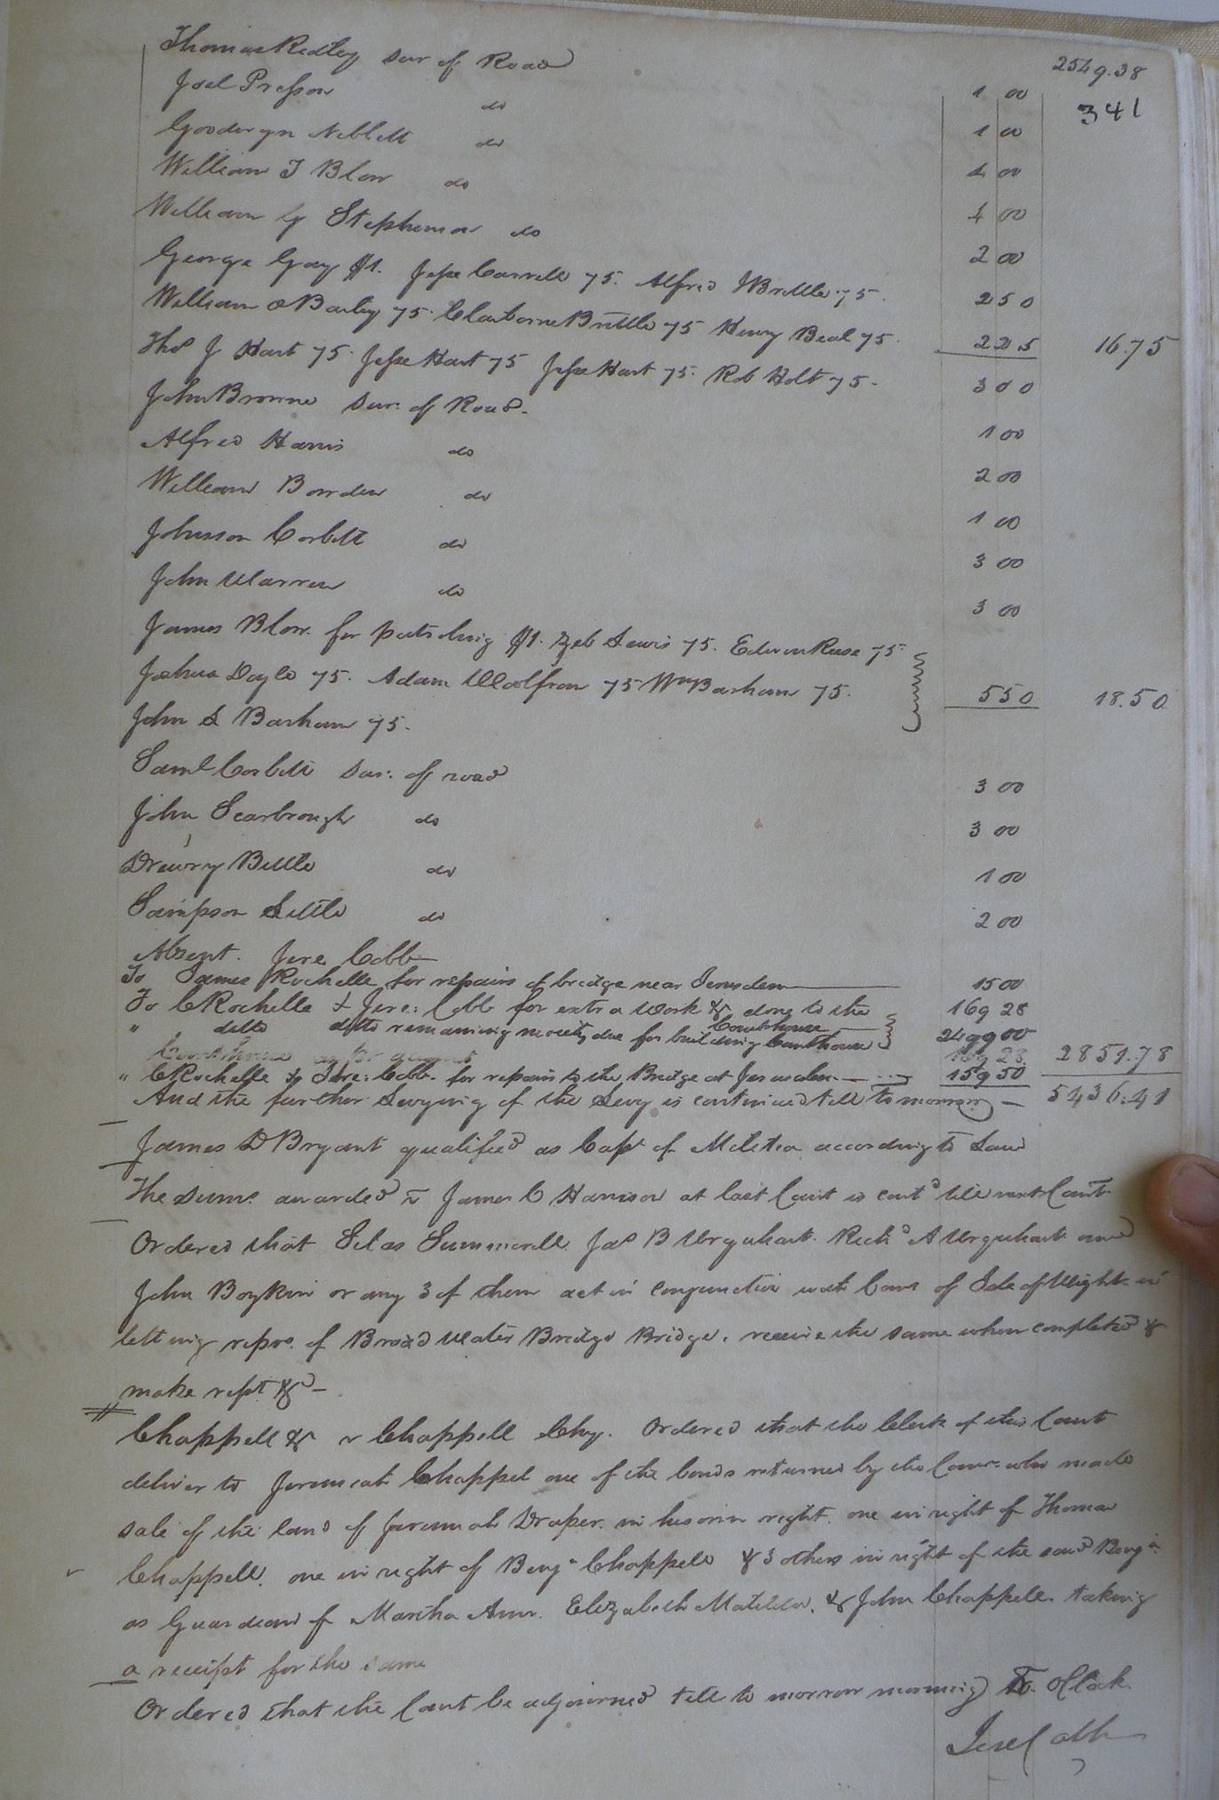 2549.38
341
Thomas Ridley Sur of Road 1 00
Joel Presson do 1 00
Gooderyn Neblett do 1 00
William T Blow do 4 00
William G Stephenson do 2 00
George Gay $1. Jesse Carrell 75. Alfred J Brittle 75. 2 50
William O Bailey 75. Claiborne Brittle 75 Henry Beal 75. 2 25 16.75
Thos J Hart 75. Jesse Hart 75 Jesse Hart 75. Rob Holt 75. 3 00
John Browne Sur. of Road. 1 00
Alfred Harris do 2 00
William Bowden do 1 00
Johnson Corbett do 3 00
John Warren do 3 00
James Blow. for patroling $1. Zeb Lewis 75. Edwin Reese 75.
Joshua Doyle 75. Adam Woolfron 75 Wm Barham 75. 5 50 18.50
John S Barham 75.
Saml Corbett Sur. of road 3 00
John Scarbrough do 3 00
Drewry Bittle do 1 00
Sampson Little do 2 00
Absent. Jere Cobb
To James Rochelle for repairs of bridge near Jerusalem 15 00
To C Rochelle & Jere: Cobb for extra work &c done to the Courthouse 169 28
" ditto ditto remaining moiety due for building Courthouse 2499 00
2851.78
" C Rochelle & Jere: Cobb for repairs to the Bridge at Jerusalem 159 50
And the further Levying of the Levy is continued till tomorrow 5436.41
James D Bryant qualified as Capt of Militia according to Law
The Sums. awarded v James C Harrison at last Court is contd till next Court
Ordered that Silas Summerell Jas B Urquhart. Richd A Urquhart and
John Boykin or any 3 of them act in conjunction with Coms of Isle of Wight in
letting repos. of Broad Water Bridge Bridge. receive the same when completed &
make rept &c
Chappell &c v Chappell Chy. Ordered that the Clerk of this Court
deliver to Jeremiah Chappel one of the bonds returned by the Comr. who made
sale of the land of Jeremiah Draper. in his own right. one in right of Thomas
Chappell. one in right of Benja Chappell & 3 others in right of the said Benja
as Guardian of Martha Ann. Elizabeth Matilda. & John Chappell. taking
a receipt for the same
Ordered that the Court be adjourned till to morrow morning 10. OClock.
Jere Cobb